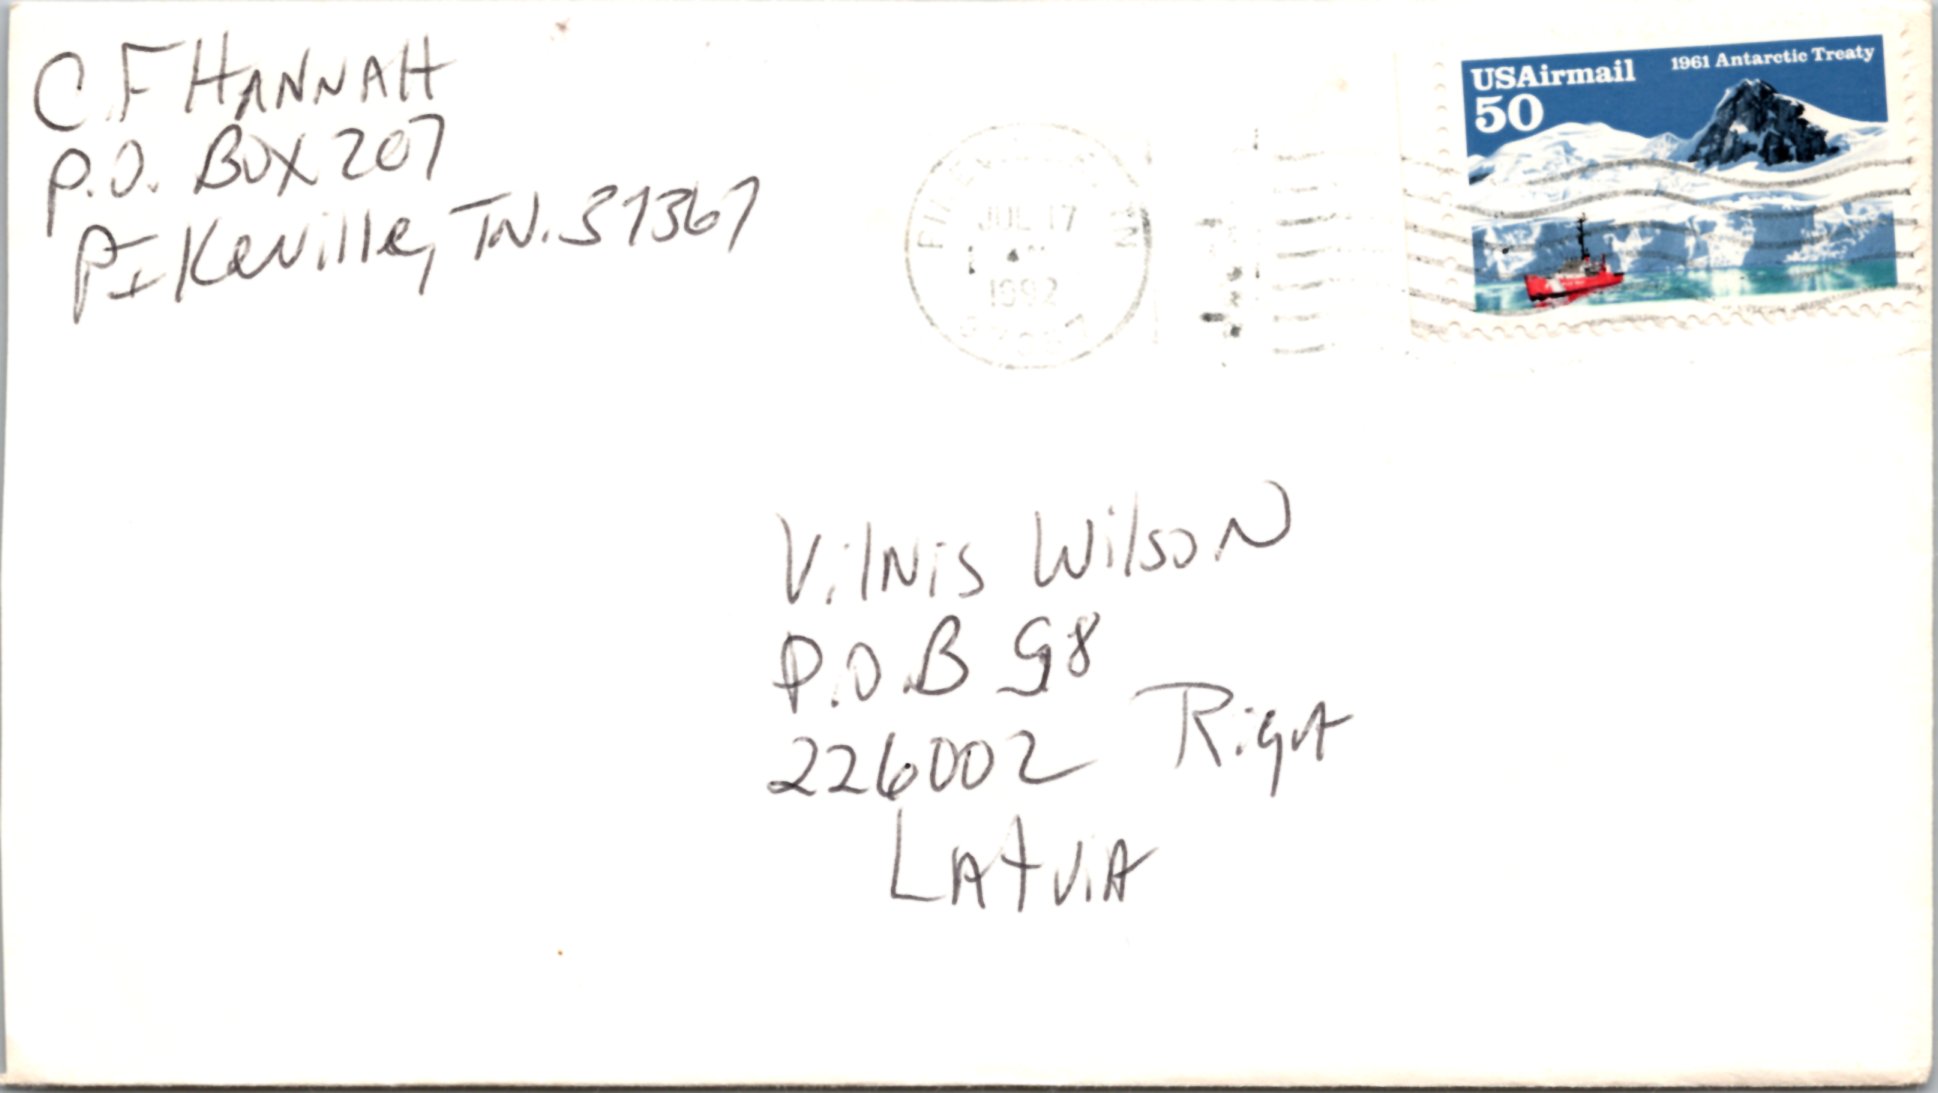 C.F HANNAH
P.O. BOX 207
PIKeville, TN. 37367
JUL 17
1992
USAirmail
50
1961 Antarctic Treaty
Vilnis Wilson
P.O.B 98
226002 Riga
LAtviA